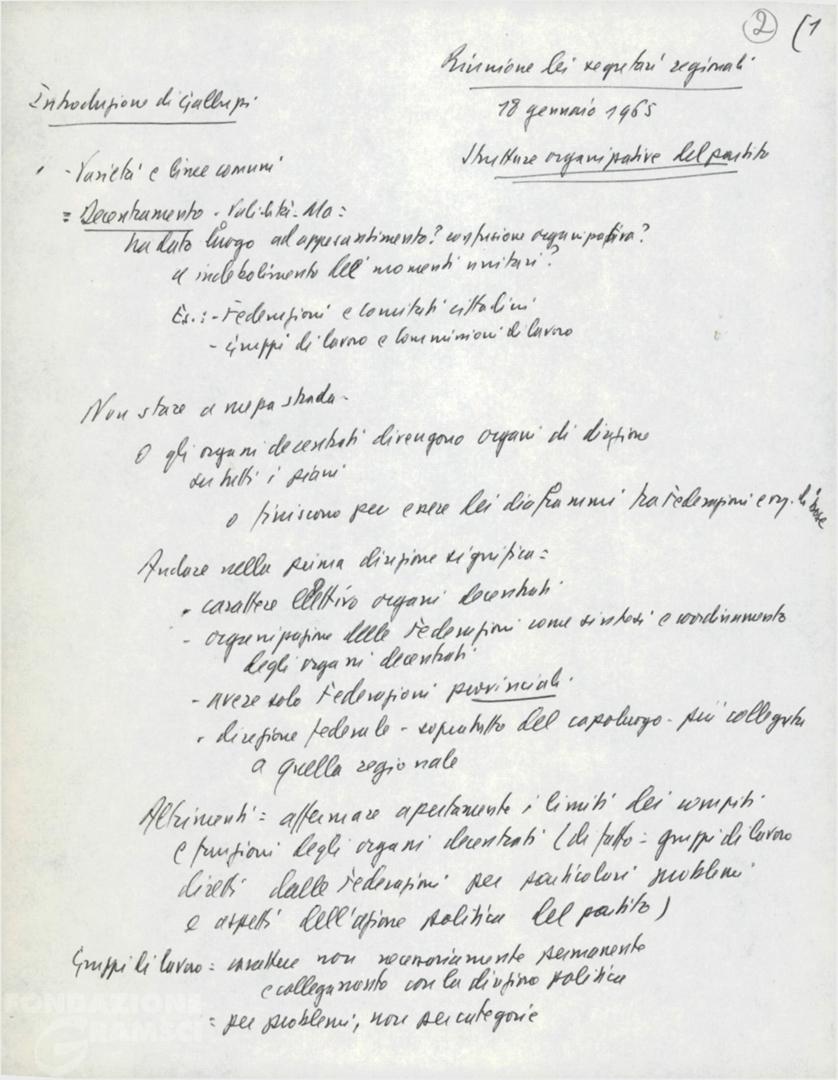 2 (1
Riunione dei segretari regionali
18 gennaio 1965
Strutture organizzative del partito
Introduzione di Galluzzi
- Varietà e linee comuni
= Decentramento - Validità - Ma =
ha dato luogo ad appesantimento? confusione organizzativa?
a indebolimento dei momenti unitari?
Es.: - Federazioni e comitati cittadini
- Gruppi di lavoro e Commissioni di lavoro
Non stare a mezza strada -
O gli organi decentrati divengono organi di direzione
su tutti i piani
o finiscono per essere dei diaframmi tra Federazioni e org. di base
Andare nella prima direzione significa =
- carattere elettivo organi decentrati
- organizzazione delle Federazioni come sintesi e coordinamento
degli organi decentrati
- avere solo Federazioni provinciali -
- direzione federale - soprattutto del capoluogo - più collegata
a quella regionale
Altrimenti = affermare apertamente i limiti dei compiti
e funzioni degli organi decentrati (di fatto = gruppi di lavoro
diretti dalle Federazioni per particolari problemi
e aspetti dell'azione politica del partito)
Gruppi di lavoro = carattere non necessariamente permanente
e collegamento con la direzione politica
= per problemi, non per categorie
FONDAZIONE
GRAMSCI